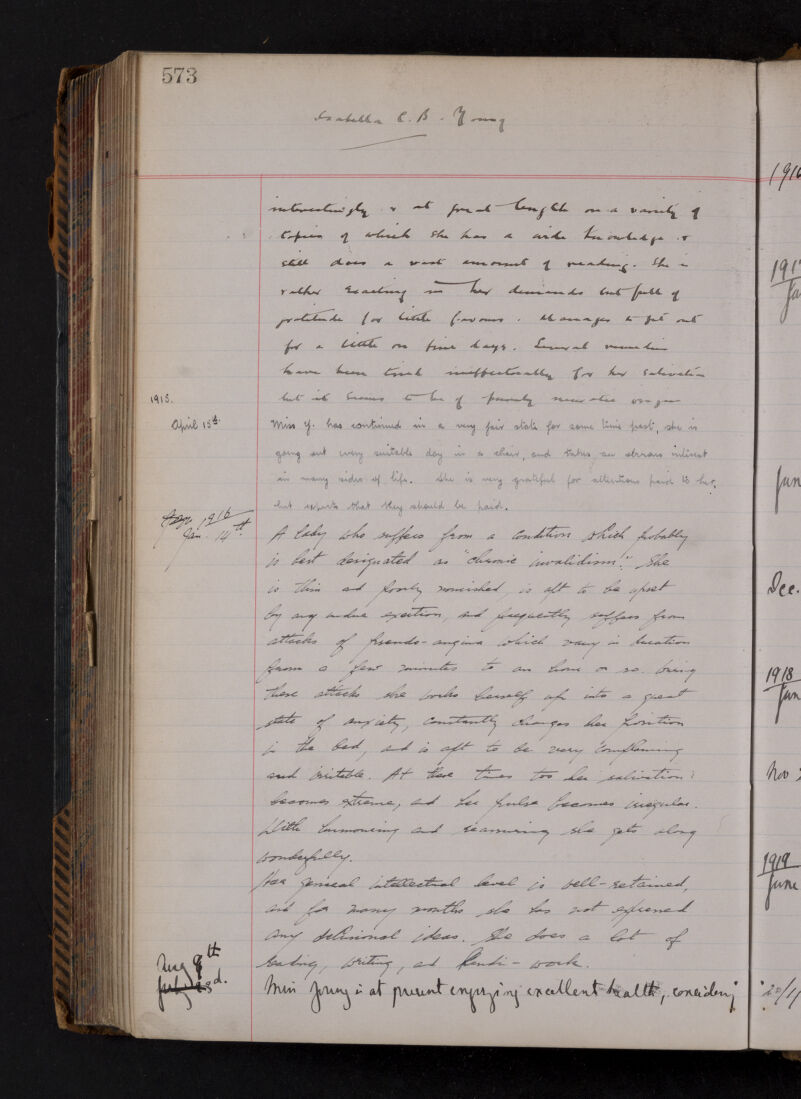 573
Isabella C. B. Young
interestingly & at great length on a variety of
topics of which she has a wide knowledge &
still does a vast amount of reading. She is
rather exacting in her demands but full of
gratitude for little favours. Manages to get out
for a little on fine days. Several remedies
have been tried ineffectually for her salivation
but it seems to be of purely neurotic origin
1915.
April 15th. Miss Y. has continued in a very fair state for some time past, she is
going out every suitable day in a chair, and takes an interest
in many sides of life. She is very grateful for attentions paid to her,
but expects that they should be paid.
1916
Jan. 14th. A lady who suffers from a condition which probably
is best designated as "chronic invalidism". She
is thin and poorly nourished, is apt to be upset
by any undue exertion, and frequently suffers from
attacks of pseudo-angina which vary in duration
from a few minutes to an hour or so. During
these attacks she works herself up into a great
state of anxiety, constantly changes her position
in the bed, and is apt to be very complaining
and irritable. At these times too her salivation
becomes extreme, and her pulse becomes irregular.
With humouring and reassuring she gets along
wonderfully.
Her general intellectual level is well-retained,
and for many months she has not expressed
any delusional ideas. She does a lot of
reading, writing, and handi-work.
Aug 8th
July 23d. Miss Young is at present enjoying excellent health, considering
1916
1917
Ja
Jun
Dec.
1918
Jun
Nov
1919
June
20/1/